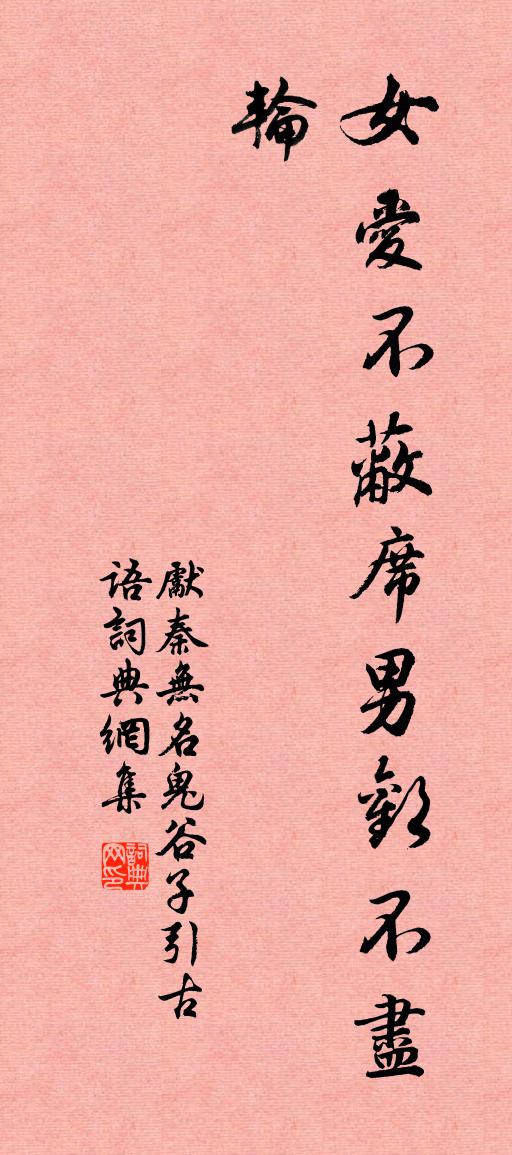 女愛不蔽席男歡不盡
輪
獻秦無名鬼谷子引古
語詞典網集
詞典
网印